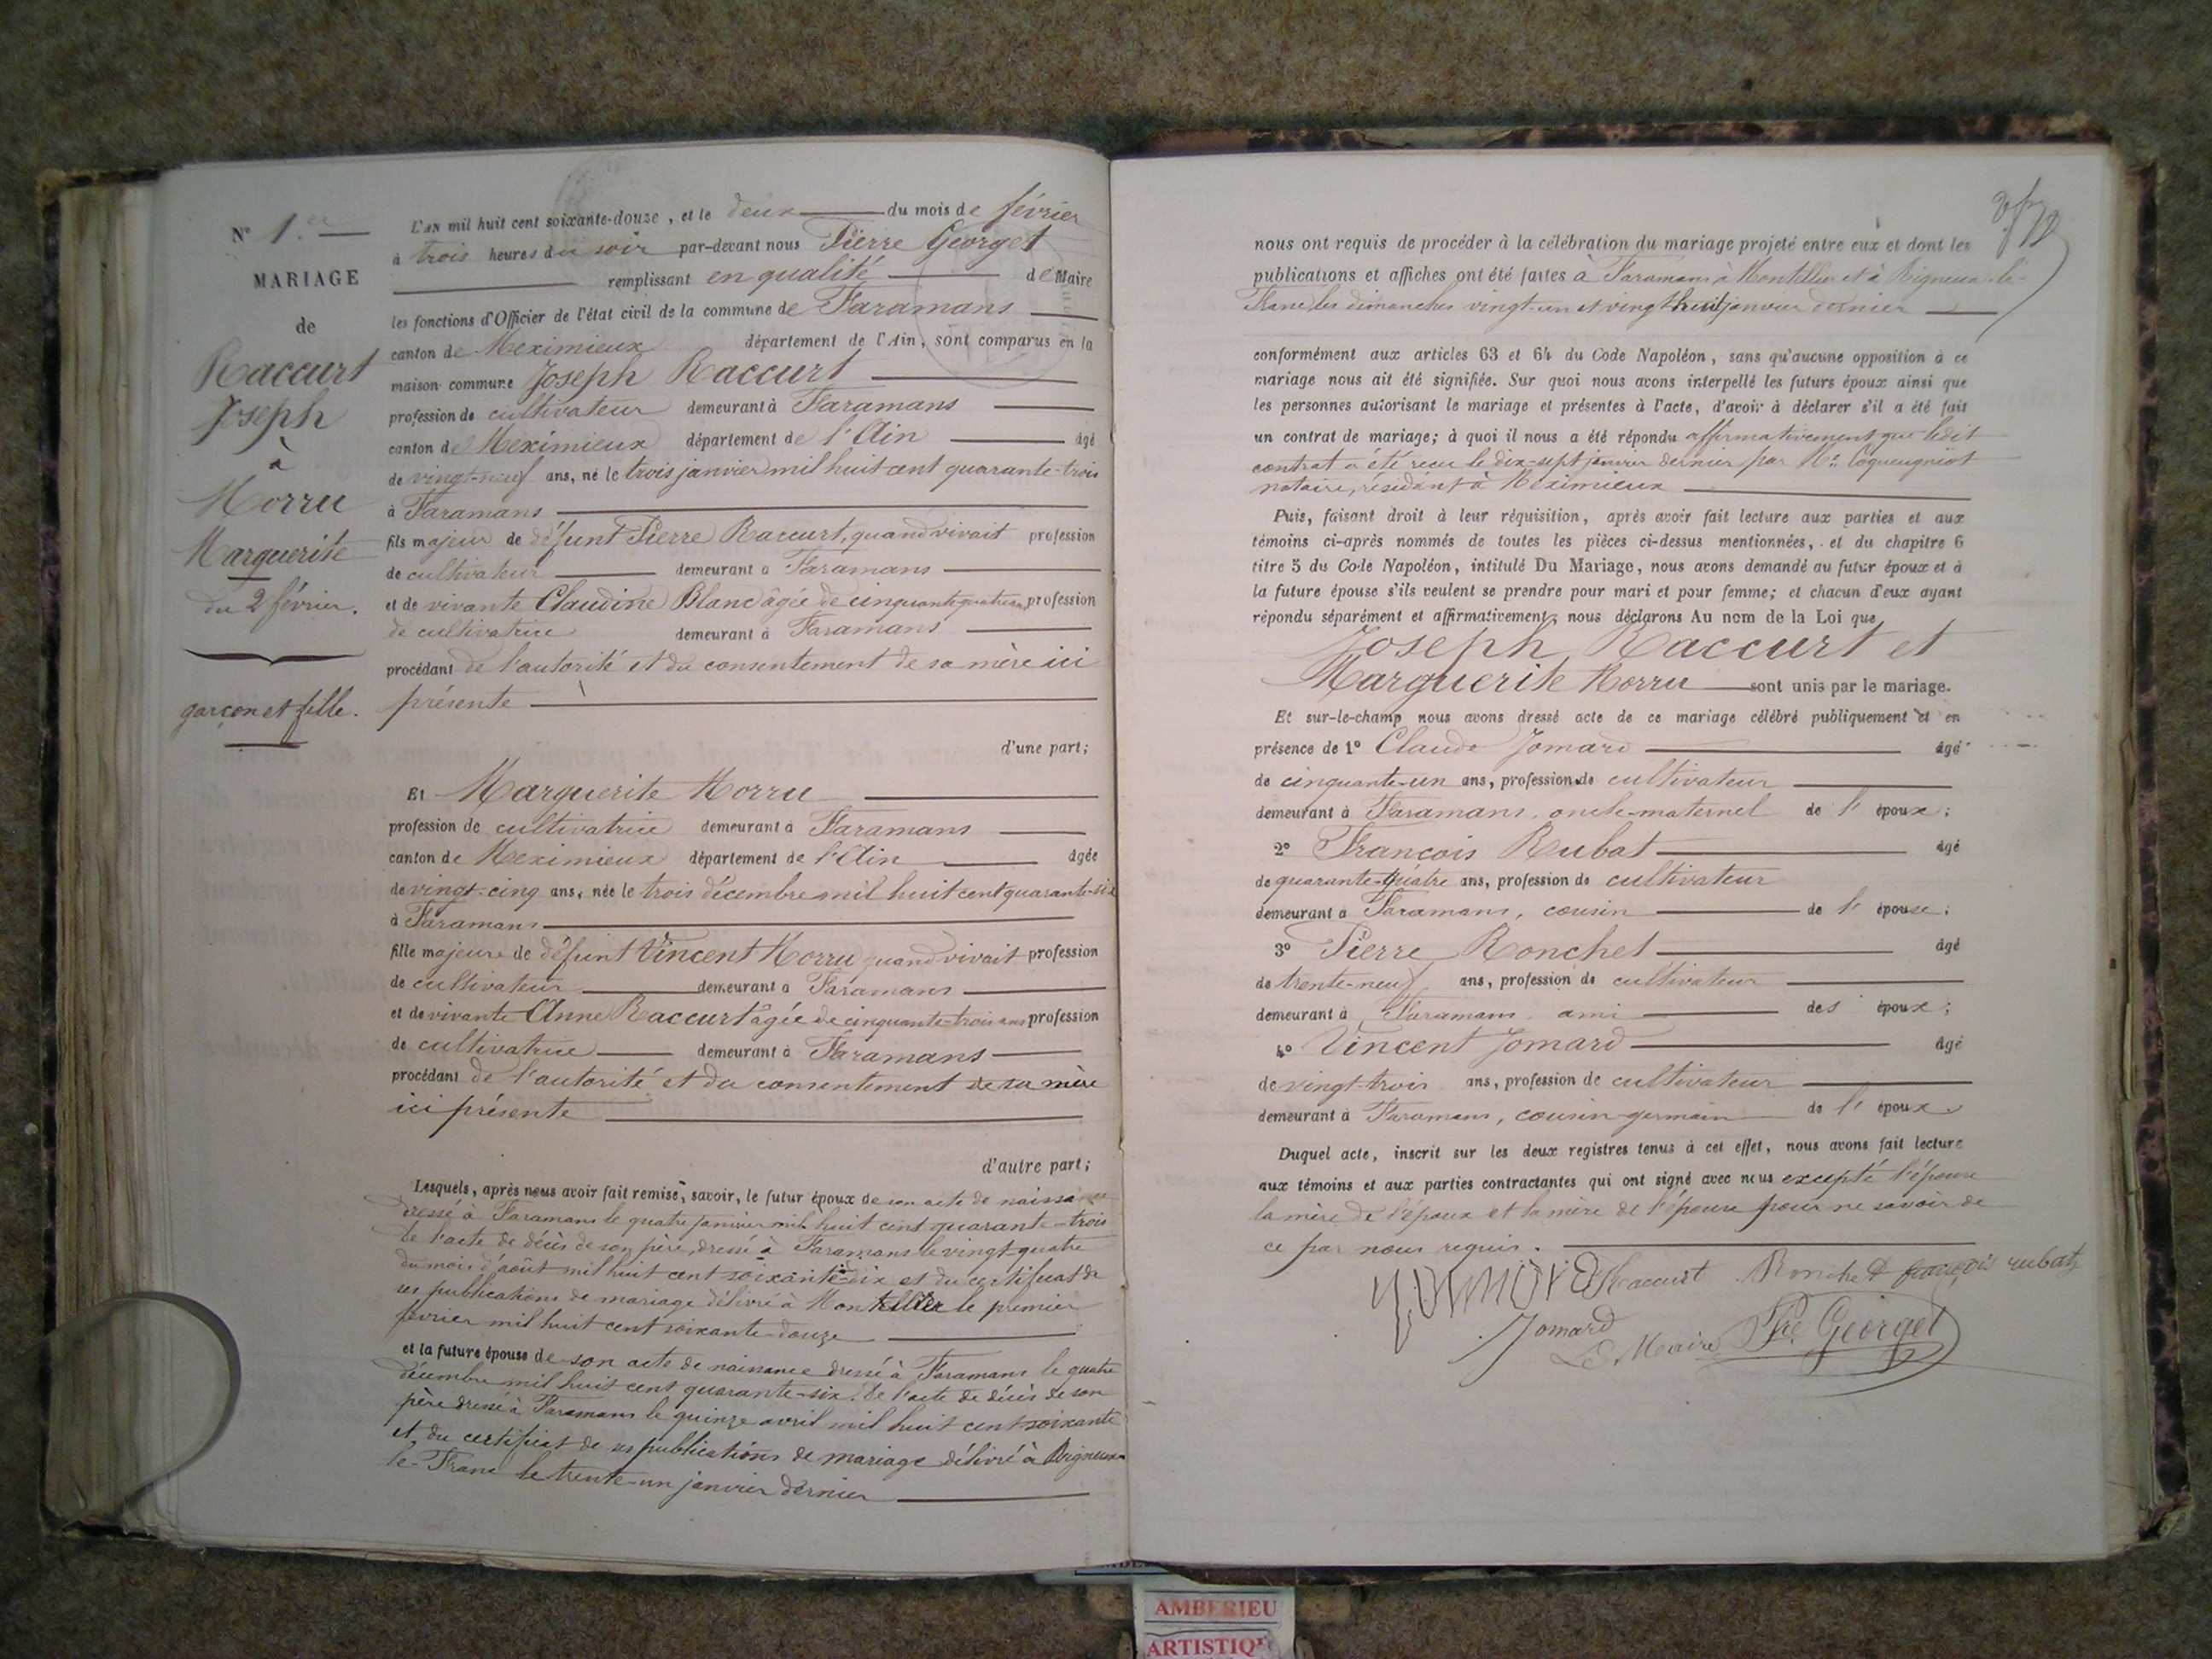 N° 1.er
MARIAGE
de
Raccurt
Joseph
à
Morru
Marguerite
du 2 février.
garçon et fille.
L'AN mil huit cent soixante-douze, et le deux du mois de février
à trois heures du soir par-devant nous Pierre Georget
remplissant en qualité de Maire
les fonctions d'Officier de l'état civil de la commune de Faramans
canton de Meximieux département de l'Ain, sont comparus en la
maison commune Joseph Raccurt
profession de cultivateur demeurant à Faramans
canton de Meximieux département de l'Ain âgé
de vingt-neuf ans, né le trois janvier mil huit cent quarante-trois
à Faramans
fils majeur de défunt Pierre Raccurt, quand vivait profession
de cultivateur demeurant à Faramans
et de vivante Claudine Blanc âgée de cinquante quatre ans, profession
de cultivatrice demeurant à Faramans
procédant de l'autorité et du consentement de sa mère ici
présente
d'une part;
Et Marguerite Morru
profession de cultivatrice demeurant à Faramans
canton de Meximieux département de l'Ain âgée
de vingt-cinq ans, née le trois décembre mil huit cent quarante-six
à Faramans
fille majeure de défunt Vincent Morru quand vivait profession
de cultivateur demeurant à Faramans
et de vivante Anne Raccurt âgée de cinquante-trois ans profession
de cultivatrice demeurant à Faramans
procédant de l'autorité et du consentement de sa mère
ici présente
d'autre part;
Lesquels, après nous avoir fait remise, savoir, le futur époux de son acte de naissance
dressé à Faramans le quatre janvier mil huit cent quarante-trois
de l'acte de décès de son père, dressé à Faramans le vingt-quatre
du mois d'août mil huit cent soixante-dix et du certificat de
ses publications de mariage délivré à Montellier le premier
février mil huit cent soixante-douze
et la future épouse de son acte de naissance dressé à Faramans le quatre
décembre mil huit cent quarante-six. de l'acte de décès de son
père dressé à Faramans le quinze avril mil huit cent soixante
et du certificat de ses publications de mariage délivré à Rigneux-
le-Franc le trente-un janvier dernier
nous ont requis de procéder à la célébration du mariage projeté entre eux et dont les
publications et affiches ont été faites à Faramans à Montellier et à Rigneux-le-
Franc, les dimanches vingt-un et vingt-huit janvier dernier
conformément aux articles 63 et 64 du Code Napoléon, sans qu'aucune opposition à ce
mariage nous ait été signifiée. Sur quoi nous avons interpellé les futurs époux ainsi que
les personnes autorisant le mariage et présentes à l'acte, d'avoir à déclarer s'il a été fait
un contrat de mariage; à quoi il nous a été répondu affirmativement que ledit
contrat a été reçu le dix-sept janvier dernier par Me Coqueugniot
notaire, résidant à Meximieux
Puis, faisant droit à leur réquisition, après avoir fait lecture aux parties et aux
témoins ci-après nommés de toutes les pièces ci-dessus mentionnées, et du chapitre 6
titre 5 du Code Napoléon, intitulé Du Mariage, nous avons demandé au futur époux et à
la future épouse s'ils veulent se prendre pour mari et pour femme; et chacun d'eux ayant
répondu séparément et affirmativement, nous déclarons Au nom de la Loi que
Joseph Raccurt et
Marguerite Morru sont unis par le mariage.
Et sur-le-champ nous avons dressé acte de ce mariage célébré publiquement et en
présence de 1° Claude Jomard âgé
de cinquante-un ans, profession de cultivateur
demeurant à Faramans, oncle-maternel de l' époux;
2° François Rubat âgé
de quarante-quatre ans, profession de cultivateur
demeurant à Faramans, cousin de l' épouse;
3° Pierre Ronchet âgé
de trente-neuf ans, profession de cultivateur
demeurant à Faramans ami des époux;
4° Vincent Jomard âgé
de vingt-trois ans, profession de cultivateur
demeurant à Faramans, cousin-germain de l' époux
Duquel acte, inscrit sur les deux registres tenus à cet effet, nous avons fait lecture
aux témoins et aux parties contractantes qui ont signé avec nous excepté l'épouse
la mère de l'époux et la mère de l'épouse pour ne savoir de
ce par nous requis.
Jomard Raccurt Ronchet françois rubat
Jomard
Le Maire Pre Georget
AMBERIEU
ARTISTIQU